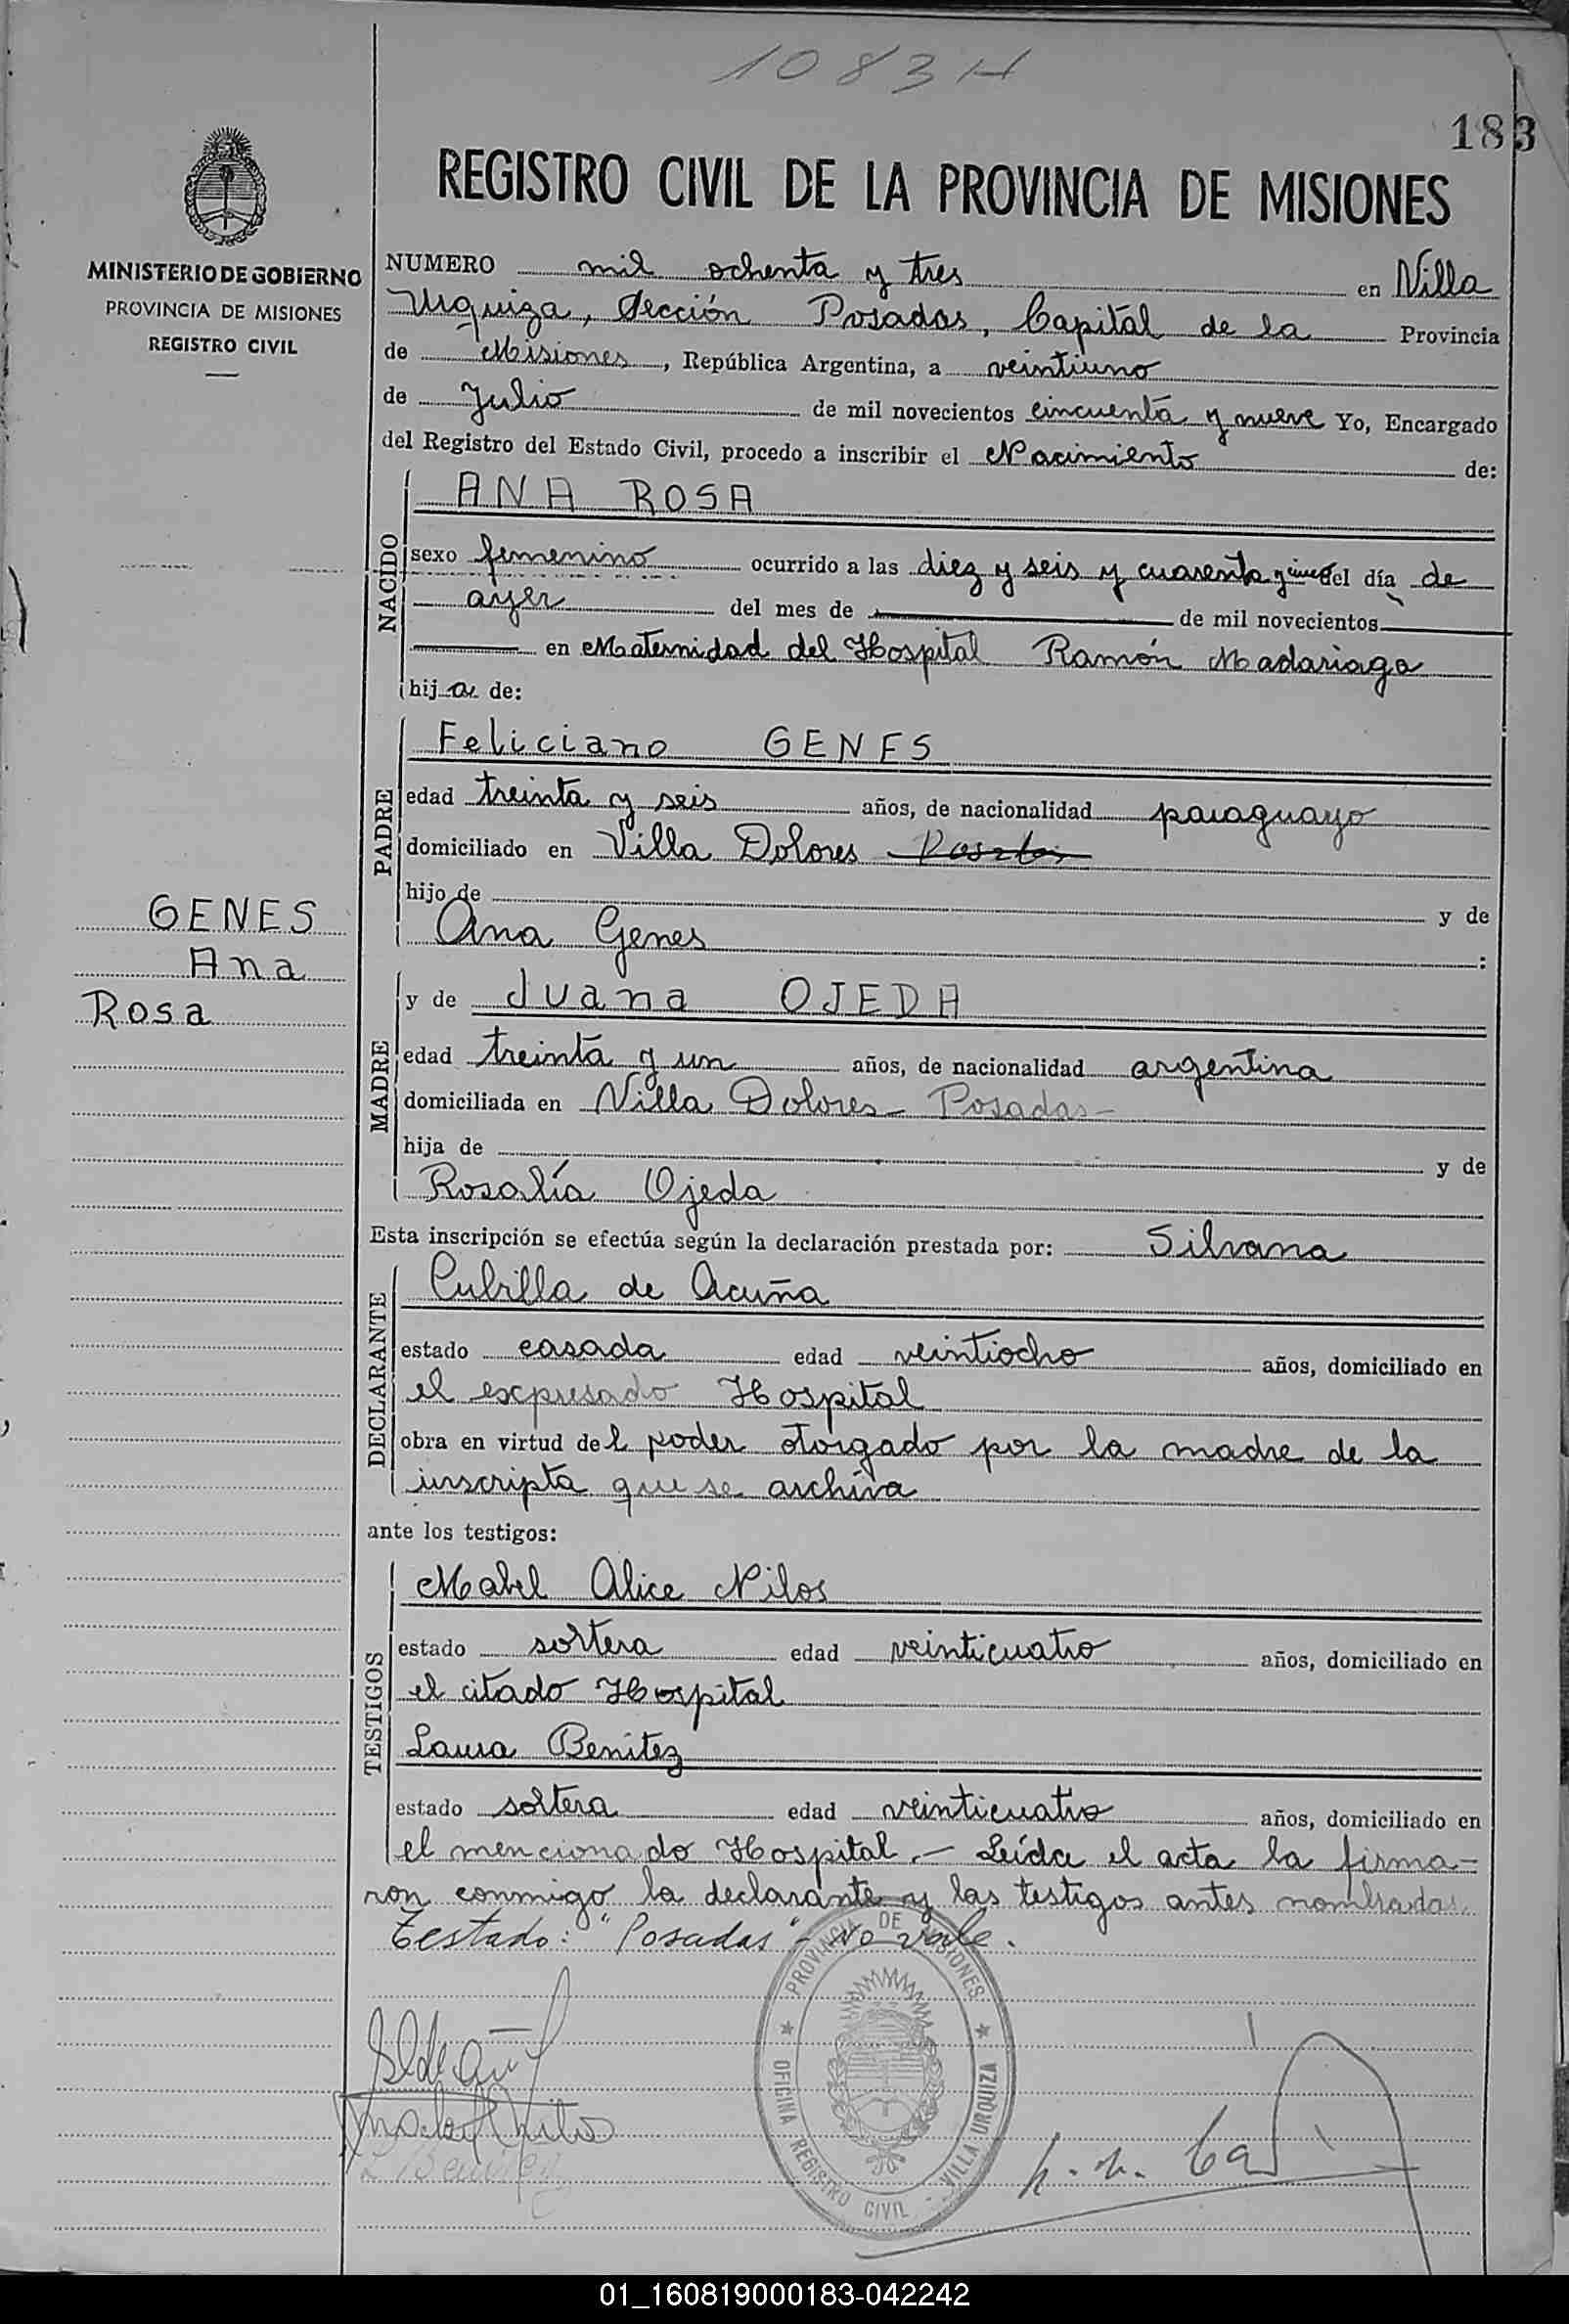 1083 H
183
REGISTRO CIVIL DE LA PROVINCIA DE MISIONES
MINISTERIO DE GOBIERNO
PROVINCIA DE MISIONES
REGISTRO CIVIL
NUMERO mil ochenta y tres en Villa
Urquiza, Sección Posadas, Capital de la Provincia
de Misiones, República Argentina, a veintiuno
de Julio de mil novecientos cincuenta y nueve Yo, Encargado
del Registro del Estado Civil, procedo a inscribir el Nacimiento de:
NACIDO
ANA ROSA
sexo femenino ocurrido a las diez y seis y cuarenta y cinco del día de
ayer del mes de de mil novecientos
en Maternidad del Hospital Ramón Madariaga
hija de:
PADRE
Feliciano GENES
edad treinta y seis años, de nacionalidad paraguayo
domiciliado en Villa Dolores Posadas
hijo de y de
Ana Genes :
GENES
Ana
Rosa
MADRE
y de Juana OJEDA
edad treinta y un años, de nacionalidad argentina
domiciliada en Villa Dolores - Posadas -
hija de y de
Rosalía Ojeda
Esta inscripción se efectúa según la declaración prestada por: Silvana
DECLARANTE
Cubilla de Acuña
estado casada edad veintiocho años, domiciliado en
el expresado Hospital
obra en virtud del poder otorgado por la madre de la
inscripta que se archiva
ante los testigos:
TESTIGOS
Mabel Alice Nilos
estado soltera edad veinticuatro años, domiciliado en
el citado Hospital
Laura Benitez
estado soltera edad veinticuatro años, domiciliado en
el mencionado Hospital.- Leída el acta la firma=
ron conmigo la declarante y las testigos antes nombradas.
Testado: "Posadas" - No vale.
PROVINCIA DE MISIONES
OFICINA REGISTRO CIVIL - VILLA URQUIZA
01_160819000183-042242